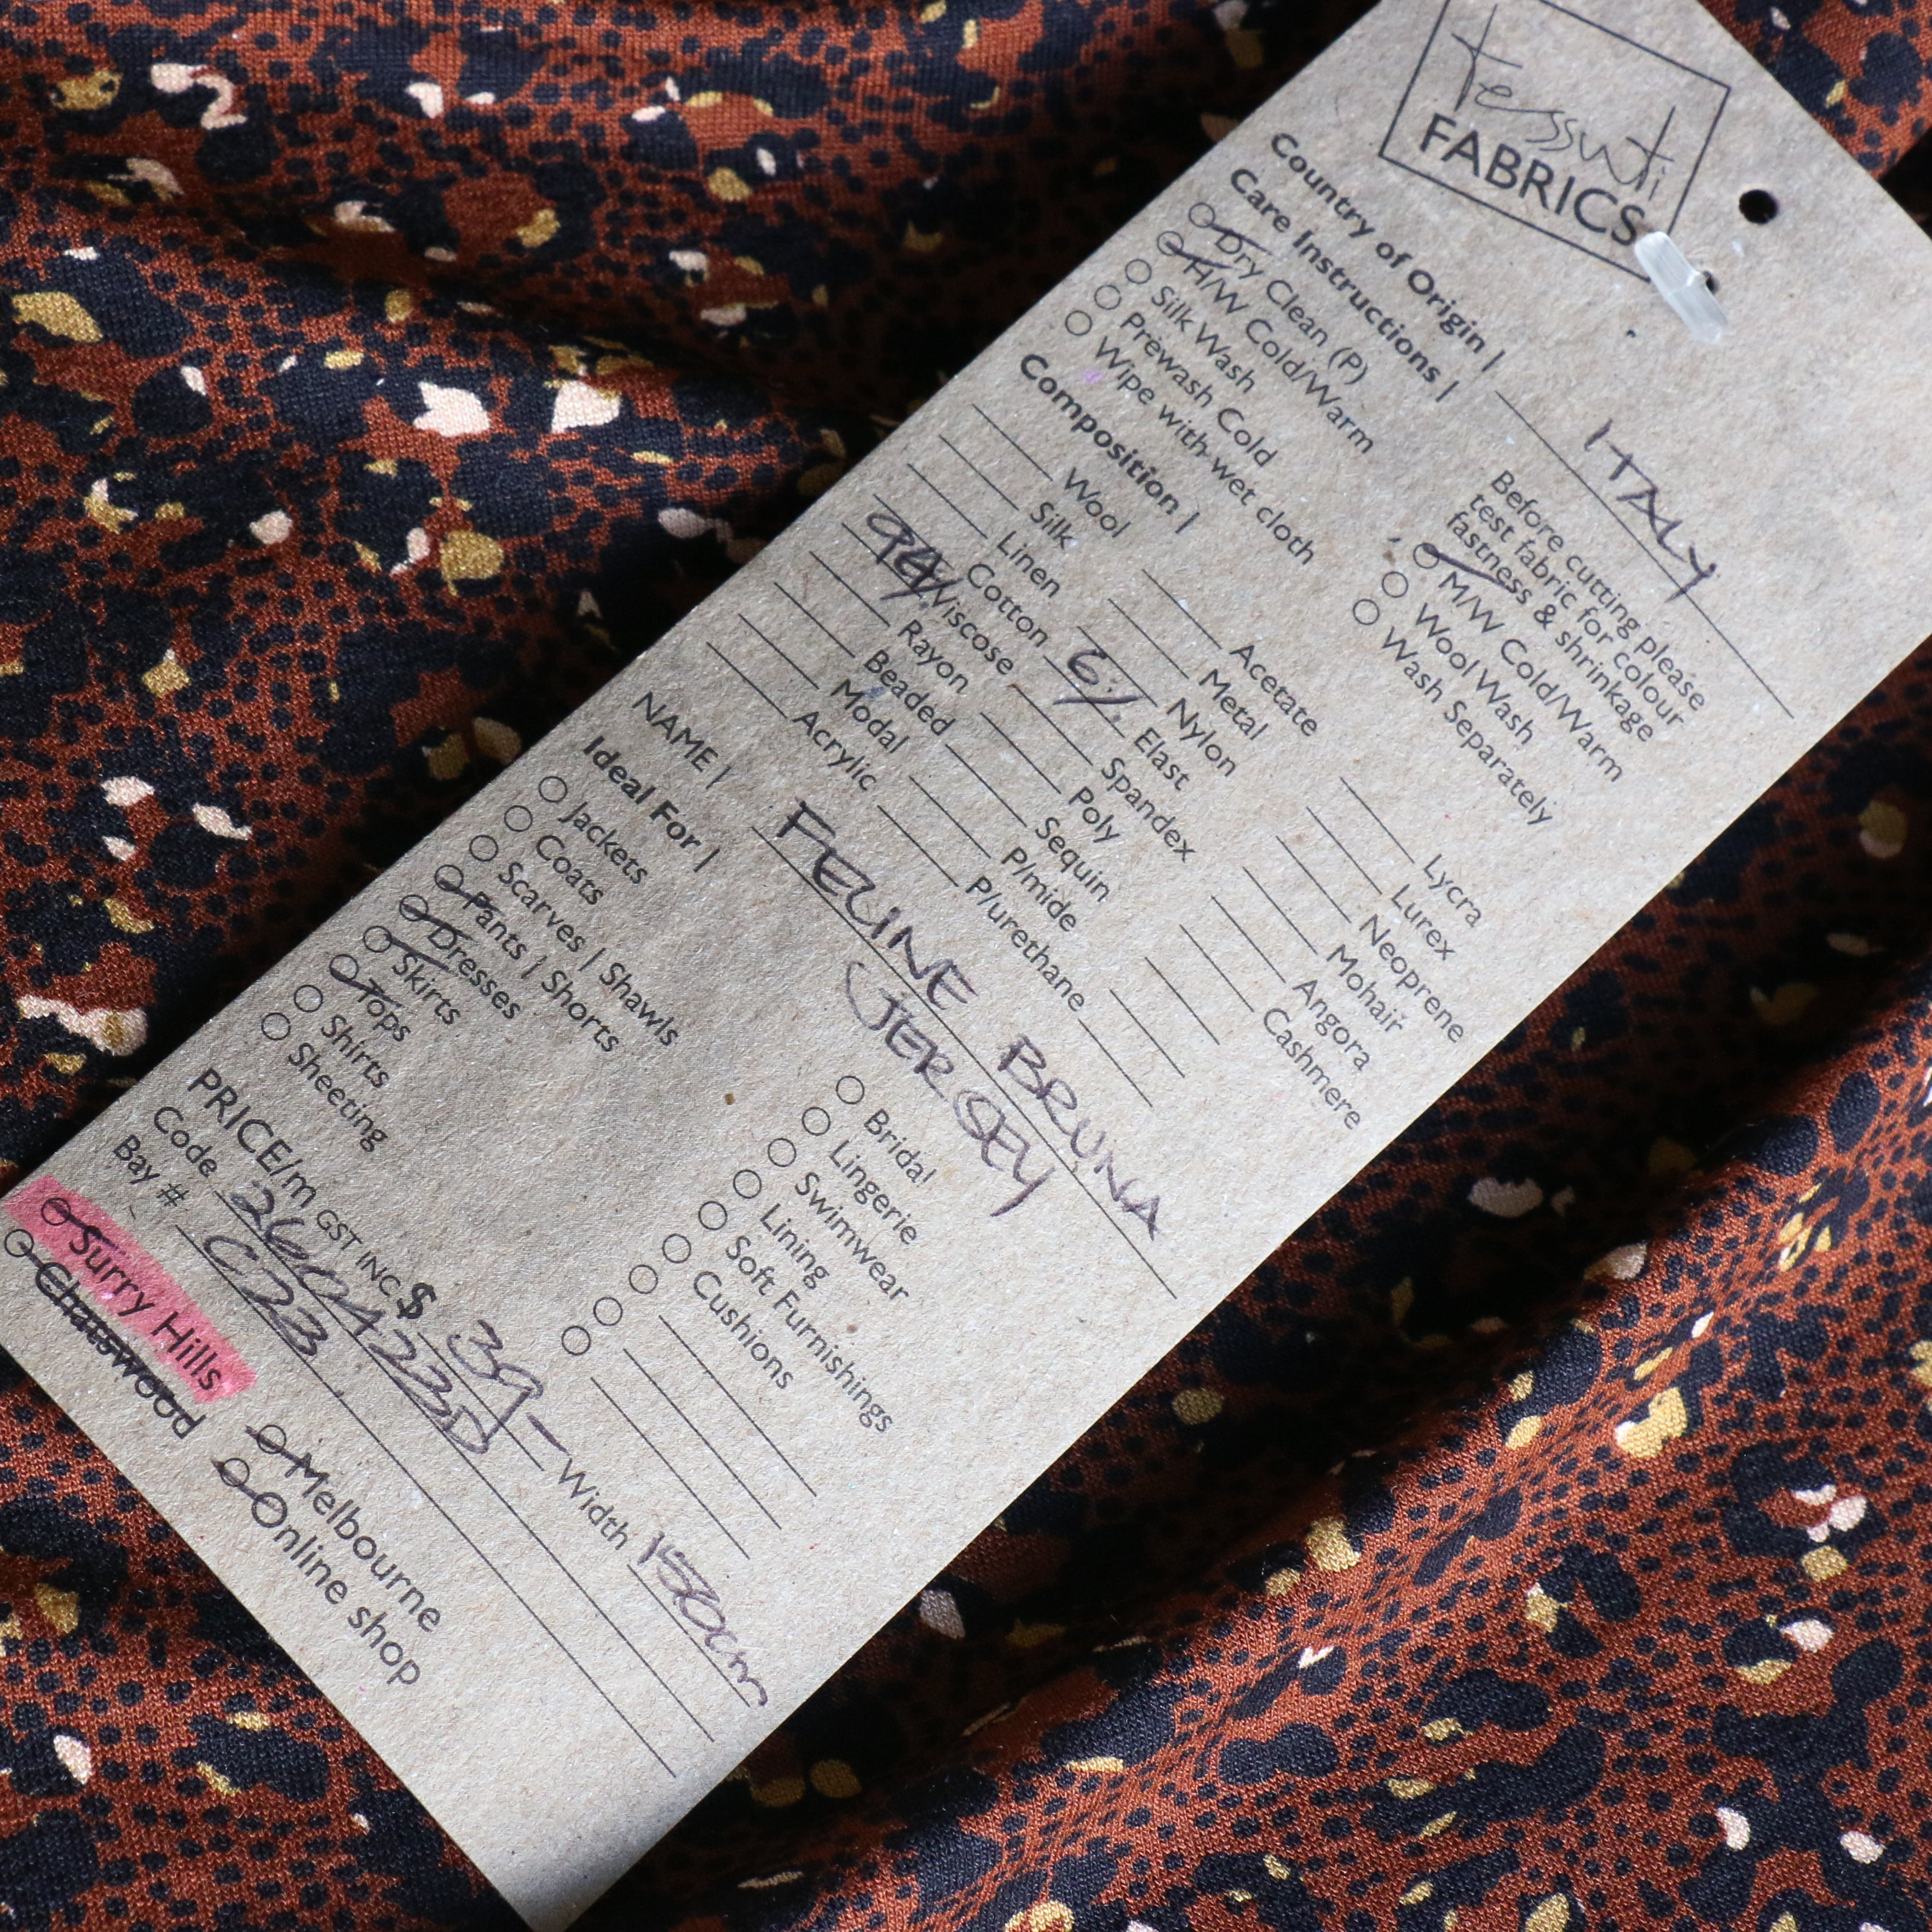 tessuti
FABRICS
Country of Origin | ITALY
Care Instructions |
Before cutting please
test fabric for colour
fastness & shrinkage
Dry Clean (P)
H/W Cold/Warm
Silk Wash
Prewash Cold
Wipe with wet cloth
M/W Cold/Warm
Wool Wash
Wash Separately
Composition |
Wool
Silk
Linen
Cotton
94% Viscose
Rayon
Beaded
Modal
Acrylic
Acetate
Metal
Nylon
6% Elast
Spandex
Poly
Sequin
P/mide
P/urethane
Lycra
Lurex
Neoprene
Mohair
Angora
Cashmere
NAME | FELINE BRUNA
JERSEY
Ideal For |
Jackets
Coats
Scarves | Shawls
Pants | Shorts
Dresses
Skirts
Tops
Shirts
Sheeting
Bridal
Lingerie
Swimwear
Lining
Soft Furnishings
Cushions
PRICE/m GST INC $ 39- Width 150cm
Code 260423D
Bay # C23
Surry Hills
Chatswood
Melbourne
Online shop